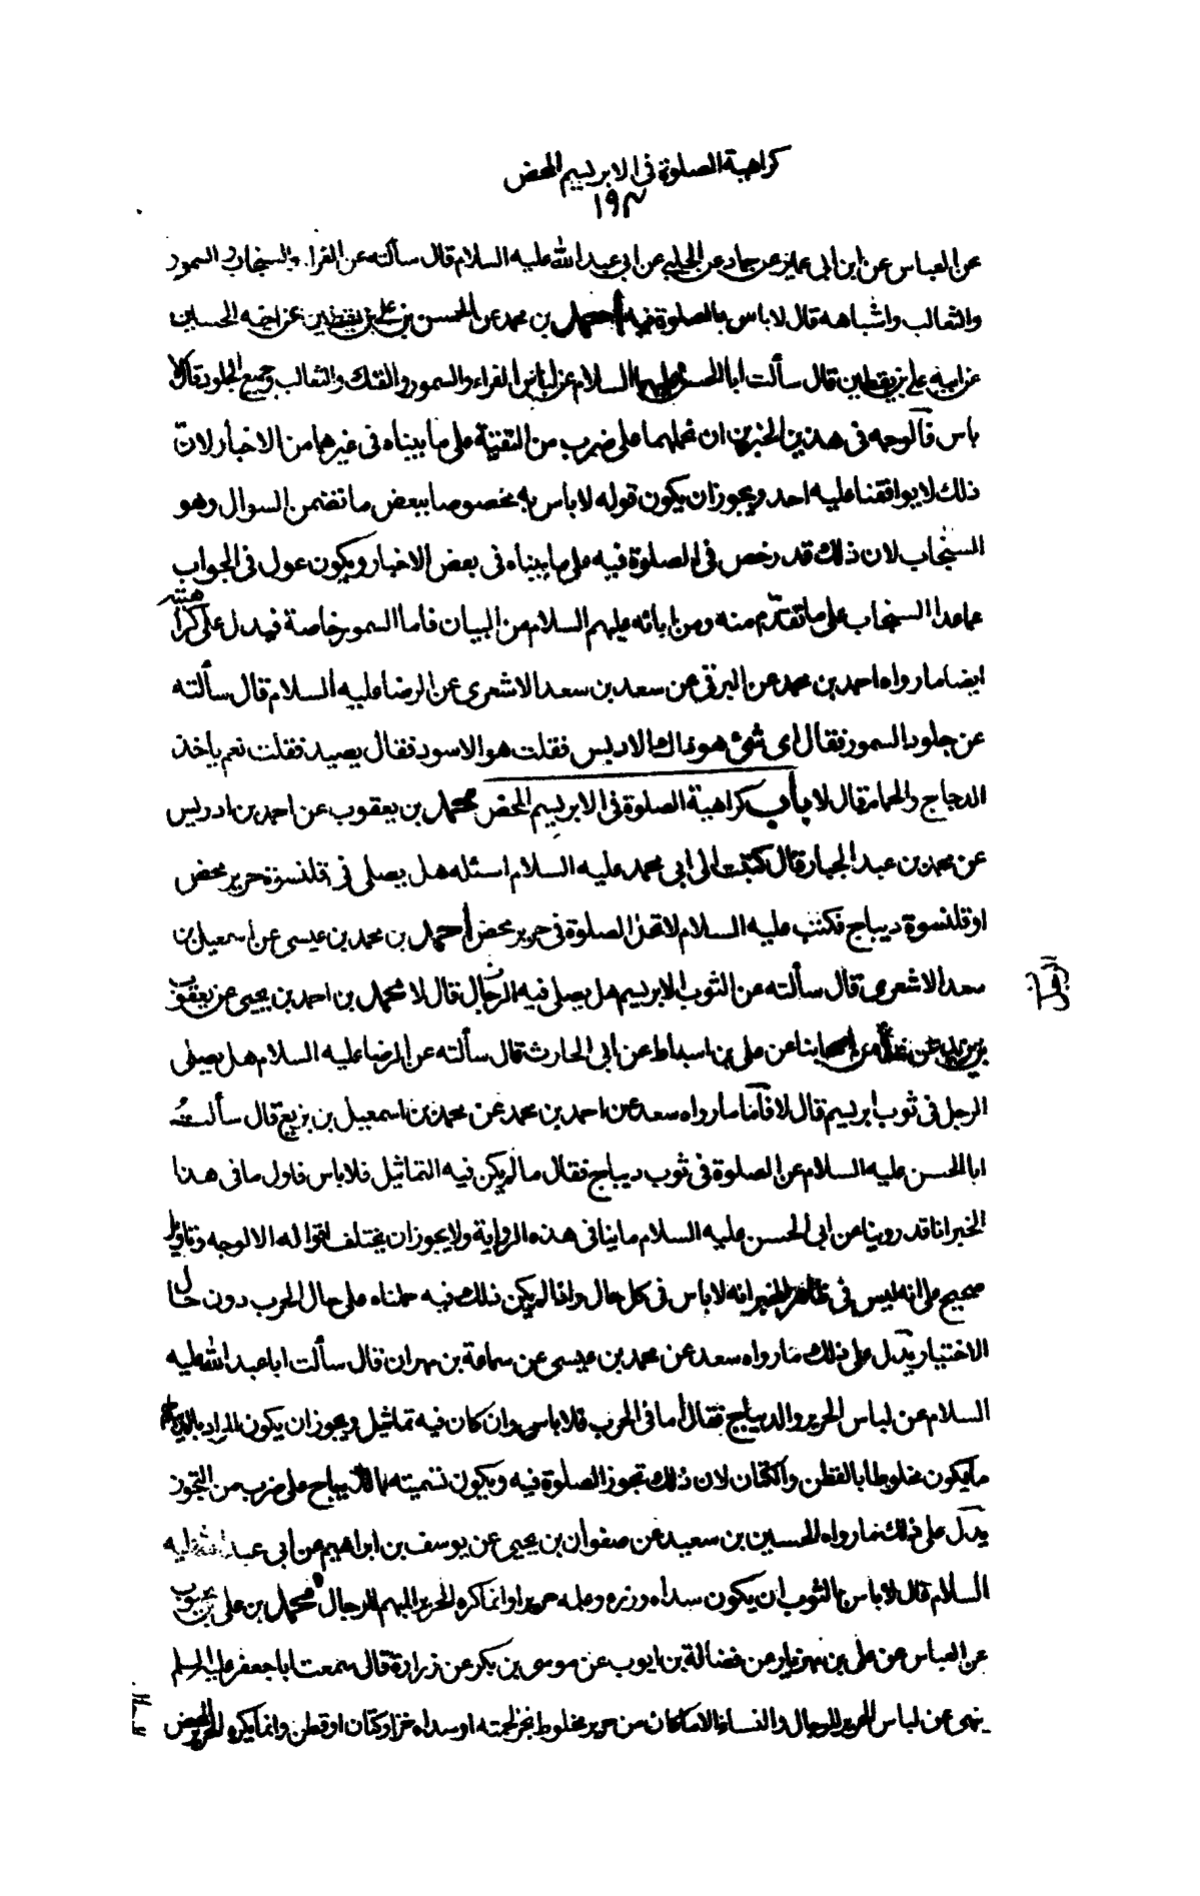 كراهية الصلوة فى الابريسم المحض
١٩٣
عن العباس عن ابن ابى عمير عن حماد عن الحلبى عن ابى عبد الله عليه السلام قال سألته عن الفراء والسنجاب والسمور
والثعالب واشباهه قال لا باس بالصلوة فيه احمد بن محمد عن الحسن بن على بن يقطين عن اخيه الحسين
عن ابيه على بن يقطين قال سألت ابا الحسن عليه السلام عن لباس الفراء والسمور والفنك والثعالب وجميع الجلود قال لا
باس فالوجه فى هذين الخبرين ان نحملهما على ضرب من التقية على ما بيناه فى غيرهما من الاخبار لان
ذلك لا يوافقنا عليه احد ويجوز ان يكون قوله لا باس به مخصوصا ببعض ما تضمن السوال وهو
السنجاب لان ذلك قد رخص فى الصلوة فيه على ما بيناه فى بعض الاخبار ويكون عول فى الجواب
عما عدا السنجاب على ما تقدّم منه ومن ابائه عليهم السلام من البيان فاما السمور خاصة فيدل على كراهيته
ايضا ما رواه احمد بن محمد عن البرقى عن سعد بن سعد الاشعرى عن الرضا عليه السلام قال سألته
عن جلود السمور فقال اى شئ هو ذاك الادبس فقلت هو الاسود فقال يصيد فقلت نعم ياخذ
الدجاج والحمام قال لا باب كراهية الصلوة فى الابريسم المحض محمد بن يعقوب عن احمد بن ادريس
عن محمد بن عبد الجبار قال كتبت الى ابى محمد عليه السلام اسئله هل يصلى فى قلنسوة حرير محض
او قلنسوة ديباج فكتب عليه السلام لا تحل الصلوة فى حرير محض احمد بن محمد بن عيسى عن اسمعيل بن
سعد الاشعرى قال سألته عن الثوب الابريسم هل يصلى فيه الرجال قال لا محمد بن احمد بن يحيى عن يعقوب
بن يزيد عن عدة من اصحابنا عن على بن اسباط عن ابى الحارث قال سألته عن الرضا عليه السلام هل يصلى
الرجل فى ثوب ابريسم قال لا فاما ما رواه سعد عن احمد بن محمد عن محمد بن اسمعيل بن بزيع قال سألت
ابا الحسن عليه السلام عن الصلوة فى ثوب ديباج فقال ما لم يكن فيه التماثيل فلا باس فاول ما فى هذا
الخبر انا قد روينا عن ابى الحسن عليه السلام ما ينافى هذه الرواية ولا يجوز ان يختلف اقواله الا لوجه وتاويل
صحيح على انه ليس فى ظاهر الخبر انه لا باس فى كل حال واذا لم يكن ذلك فيه حملناه على حال الحرب دون حال
الاختيار يدل على ذلك ما رواه سعد عن محمد بن عيسى عن سماعة بن مهران قال سألت ابا عبد الله عليه
السلام عن لباس الحرير والديباج فقال اما فى الحرب فلا باس وان كان فيه تماثيل ويجوز ان يكون المراد بالديباج
ما يكون مخلوطا بالقطن والكتان لان ذلك تجوز الصلوة فيه ويكون تسميته بالديباج على ضرب من التجوز
يدل على ذلك ما رواه الحسين بن سعيد عن صفوان بن يحيى عن يوسف بن ابراهيم عن ابى عبد الله عليه
السلام قال لا باس بالثوب ان يكون سداه وزره وعلمه حريرا وانما كره الحرير المبهم للرجال محمد بن على بن محبوب
عن العباس عن على بن مهزيار عن فضالة بن ايوب عن موسى بن بكر عن زرارة قال سمعت ابا جعفر عليه السلم
ينهى عن لباس الحرير للرجال والنساء الا ما كان من حرير مخلوط بخز لحمته او سداه خز او كتان او قطن وانما يكره الحرير المحض